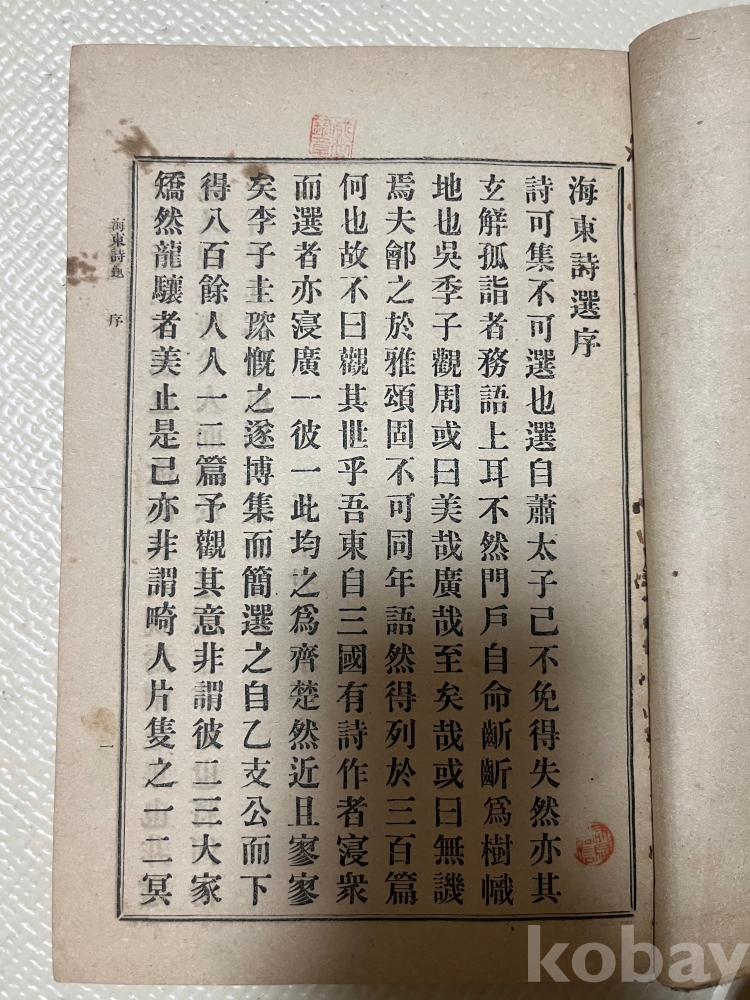 海東詩選序
詩可集不可選也選自蕭太子己不免得失然亦其
玄解孤詣者務語上耳不然門戶自命齗齗爲樹幟
地也吳季子觀周或曰美哉廣哉至矣哉或曰無譏
焉夫鄶之於雅頌固不可同年語然得列於三百篇
何也故不曰觀其世乎吾東自三國有詩作者寖衆
而選者亦寖廣一彼一此均之爲齊楚然近且寥寥
矣李子圭瑢慨之遂博集而簡選之自乙支公而下
得八百餘人人一二篇予觀其意非謂彼二三大家
矯然龍驤者美止是己亦非謂畸人片隻之一二冥
海東詩選 序
一
kobay